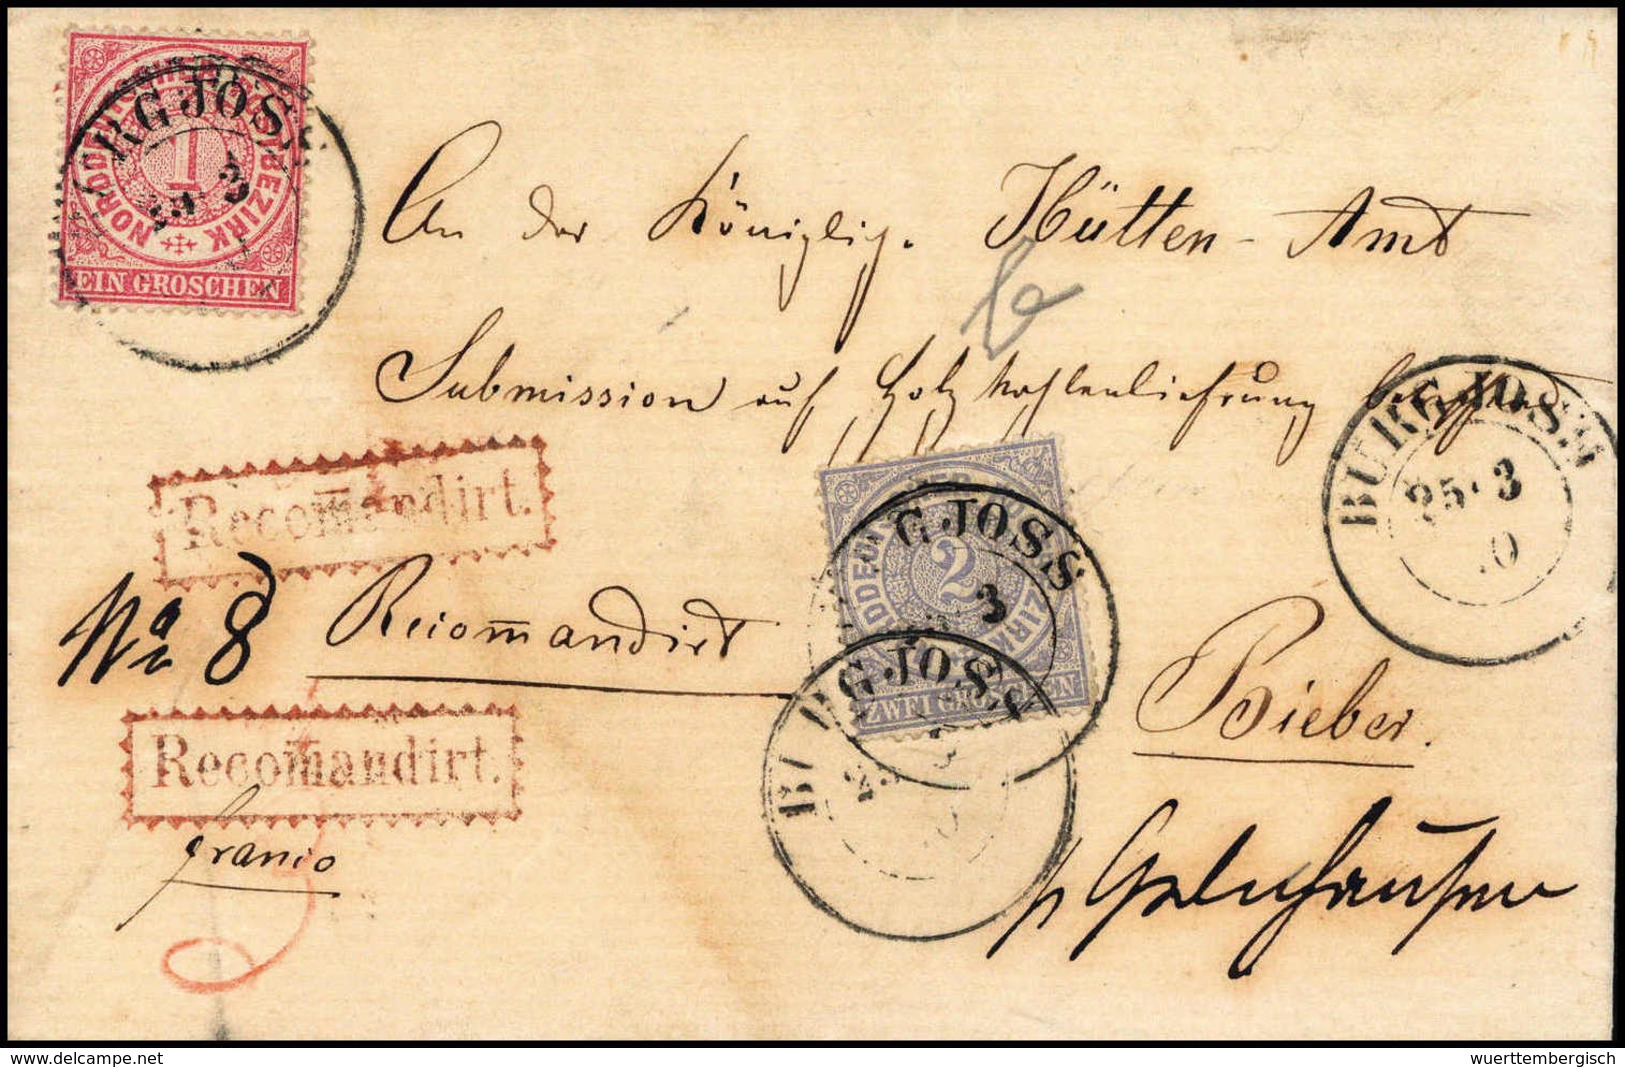 NORDDEUTSCHER POSTBEZIRK
1
EIN GROSCHEN
RG JOSS
3
An der Königlig. Hütten-Amt
Submission auf Holzkohlenlieferung betreffend
BURG JOSS
25. 3
Recomandirt.
2
G JOSS
3
ZWEI GROSCHEN
No 8 Recomandirt
BURG JOSS
Bieber.
Recomandirt.
franco
p Gelnhausen
www.delcampe.net
wuerttembergisch